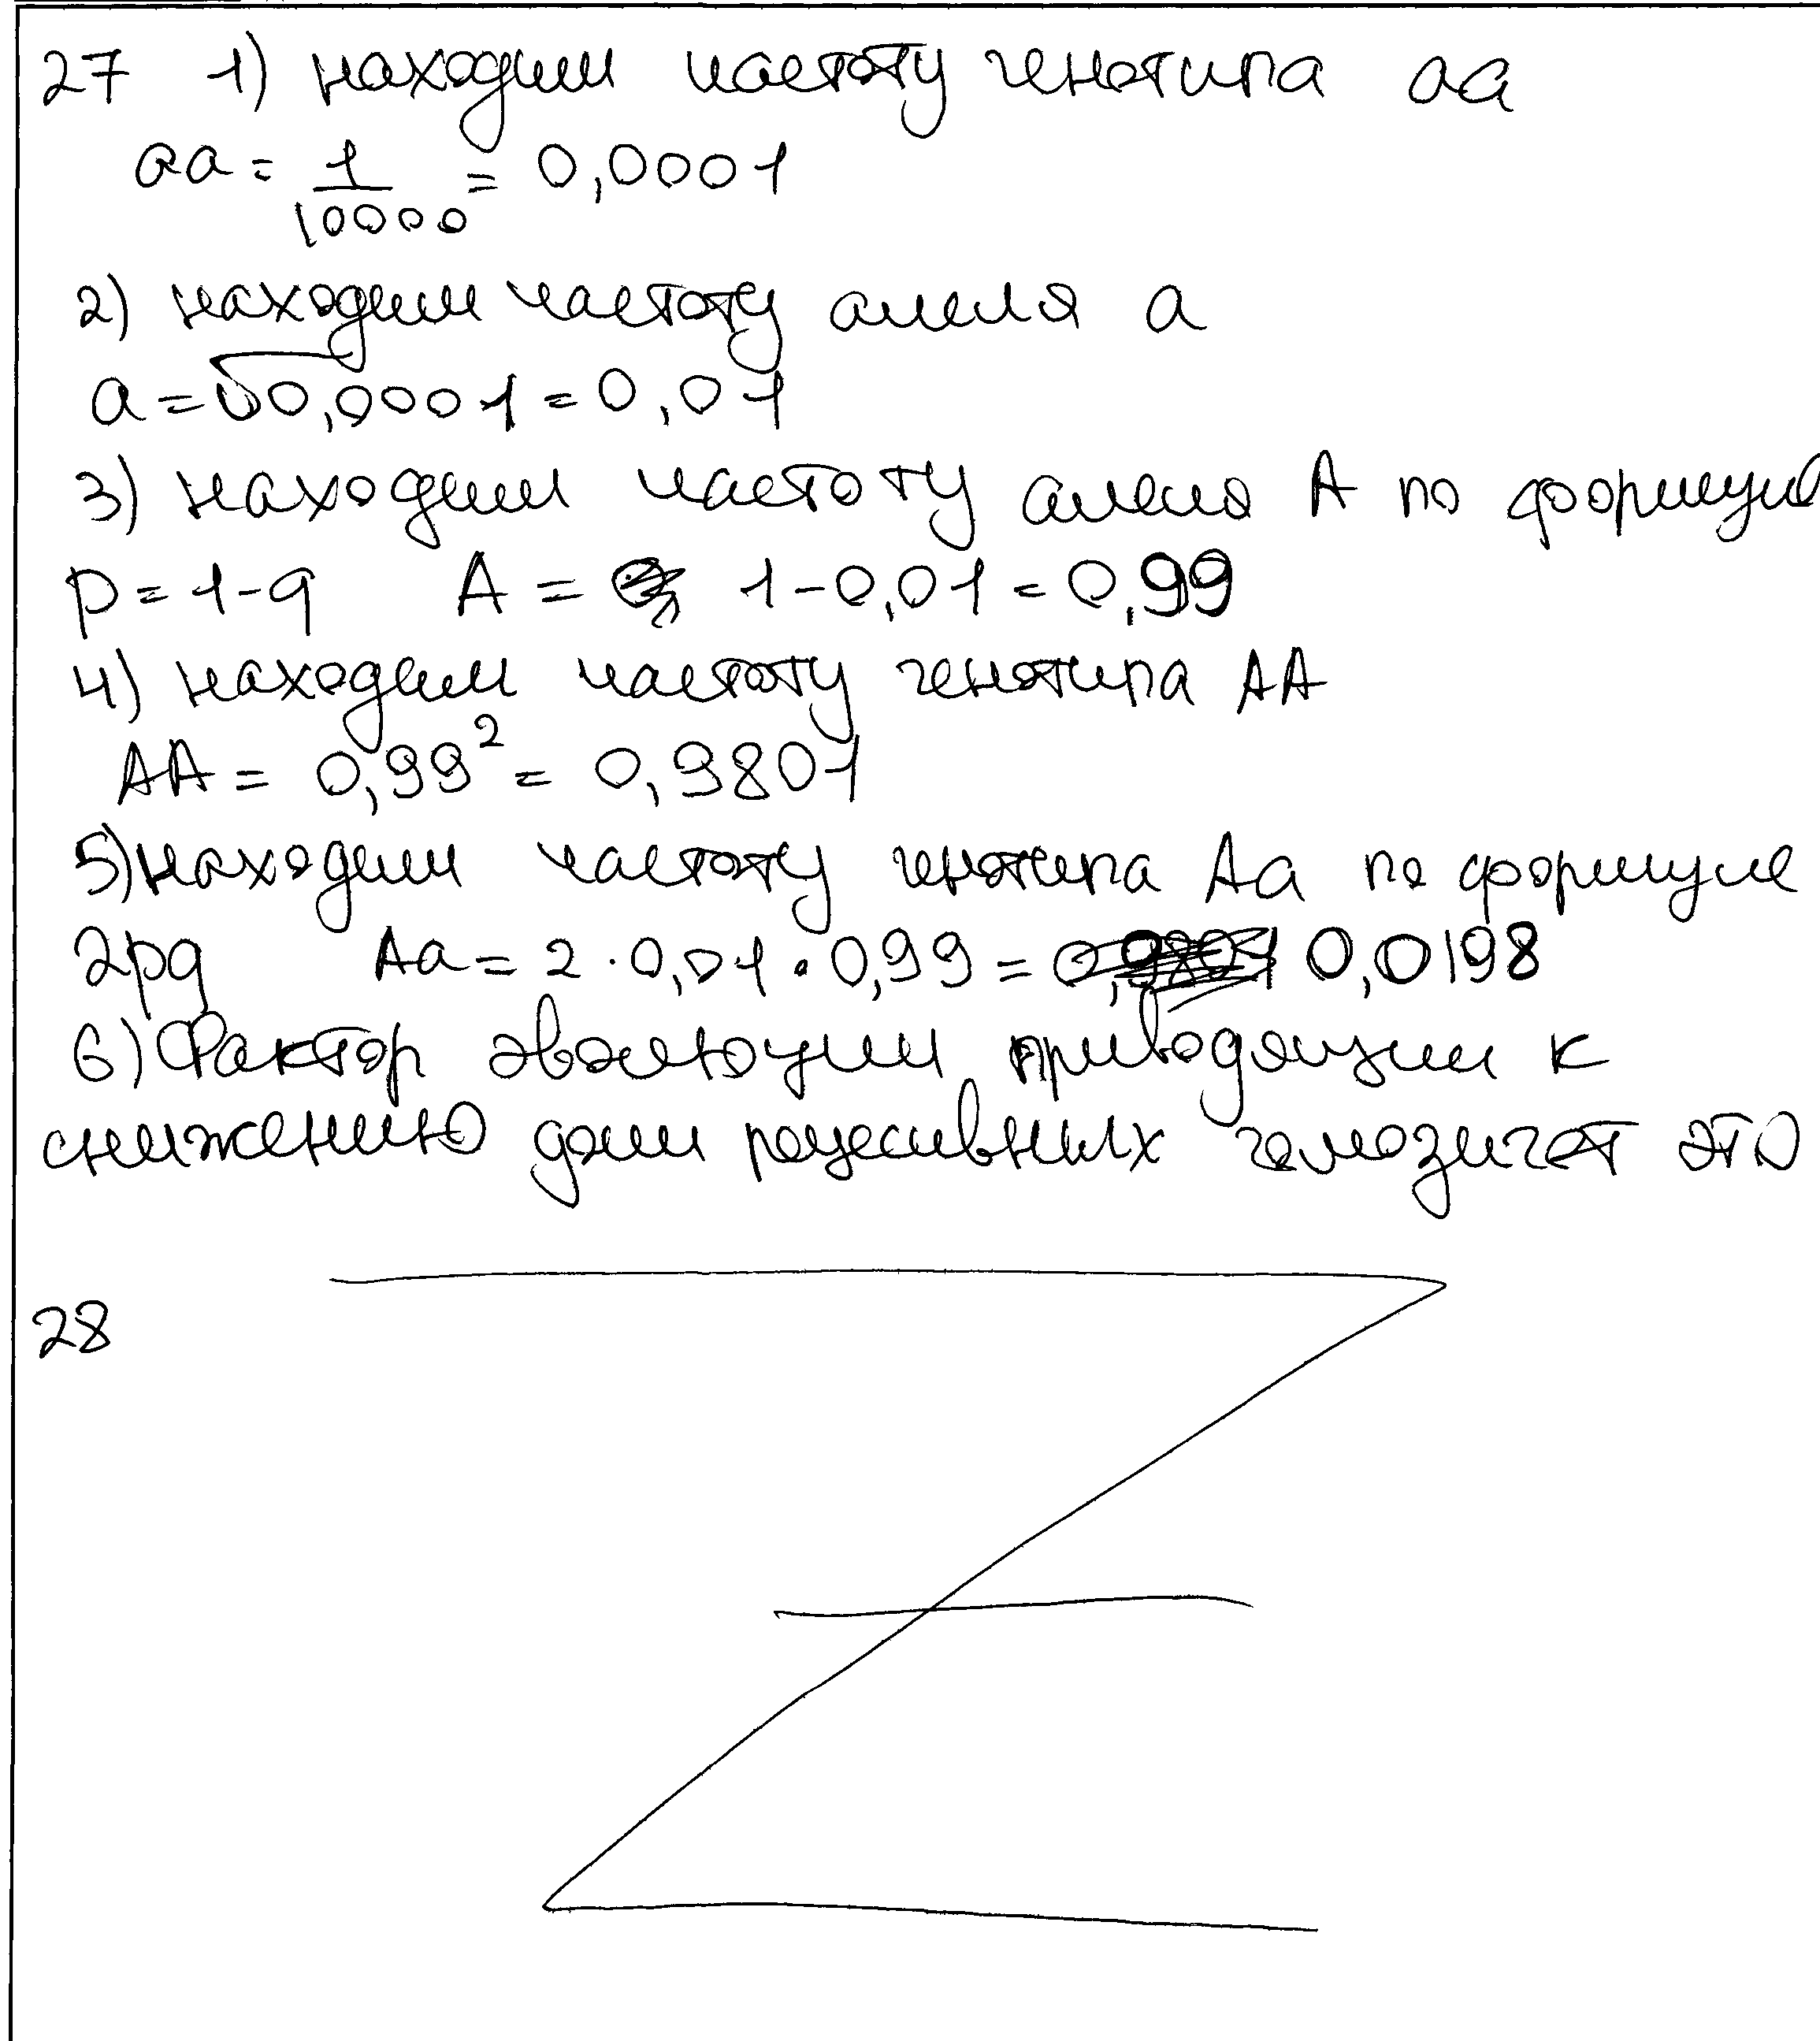 27 1) находим частоту генотипа аа
аа = 1/10000 = 0,0001
2) находим частоту алеля а
а = √0,0001 = 0,01
3) находим частоту алеля А по формуле
p = 1-q А = 1-0,01 = 0,99
4) находим частоту генотипа АА
АА = 0,99² = 0,9801
5) находим частоту генотипа Аа по формуле
2pq Аа = 2 · 0,01 · 0,99 = 0,0198
6) Фактор эволюции приводящии к
снижению доли рецесивных гомозигот это
28